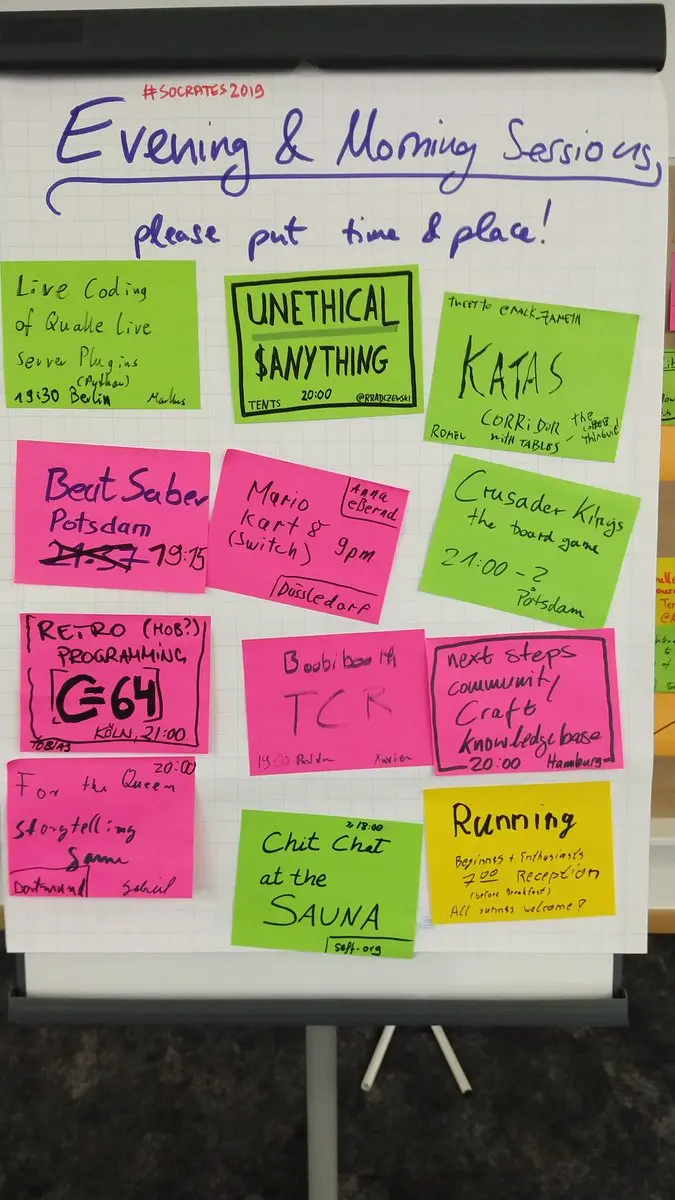 #SOCRATES2019
Evening & Morning Sessions,
please put time & place!
Live Coding
of Quake Live
Server Plugins
(Python)
19:30 Berlin Markus
UNETHICAL
$ANYTHING
TENTS 20:00 @RRADCZEWSKI
TWEET TO
KATAS
CORRIDOR
ROMEU with TABLES -
Beat Saber
Potsdam
21:37 19:15
Anna
&Bernd
Mario
Kart 8
(Switch) 9pm
Düsseldorf
Crusader Kings
the board game
21:00 - ?
Potsdam
RETRO (MOB?)
PROGRAMMING
C=64
KÖLN, 21:00
TOBIAS
TCR
Xavier
next steps
community
Craft
knowledgebase
20:00 Hamburg
20:00
For the Queen
Storytelling
Game
Dortmund Gabriel
≥ 18:00
Chit Chat
at the
SAUNA
Running
Beginners + Enthusiasts
7:00 Reception
(before Breakfast)
All runners welcome!